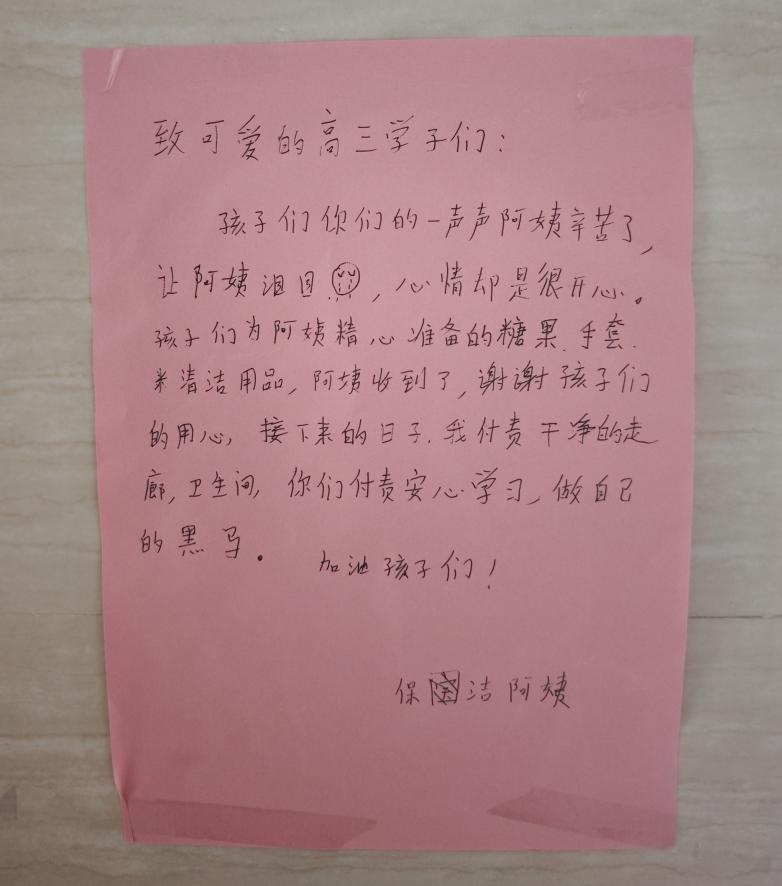 致可爱的高三学子们：
孩子们你们的一声声阿姨辛苦了，
让阿姨泪目，心情却是很开心。
孩子们为阿姨精心准备的糖果、手套、
米清洁用品，阿姨收到了，谢谢孩子们
的用心，接下来的日子，我付责干净的走
廊，卫生间，你们付责安心学习，做自己
的黑马。 加油孩子们！
保洁阿姨